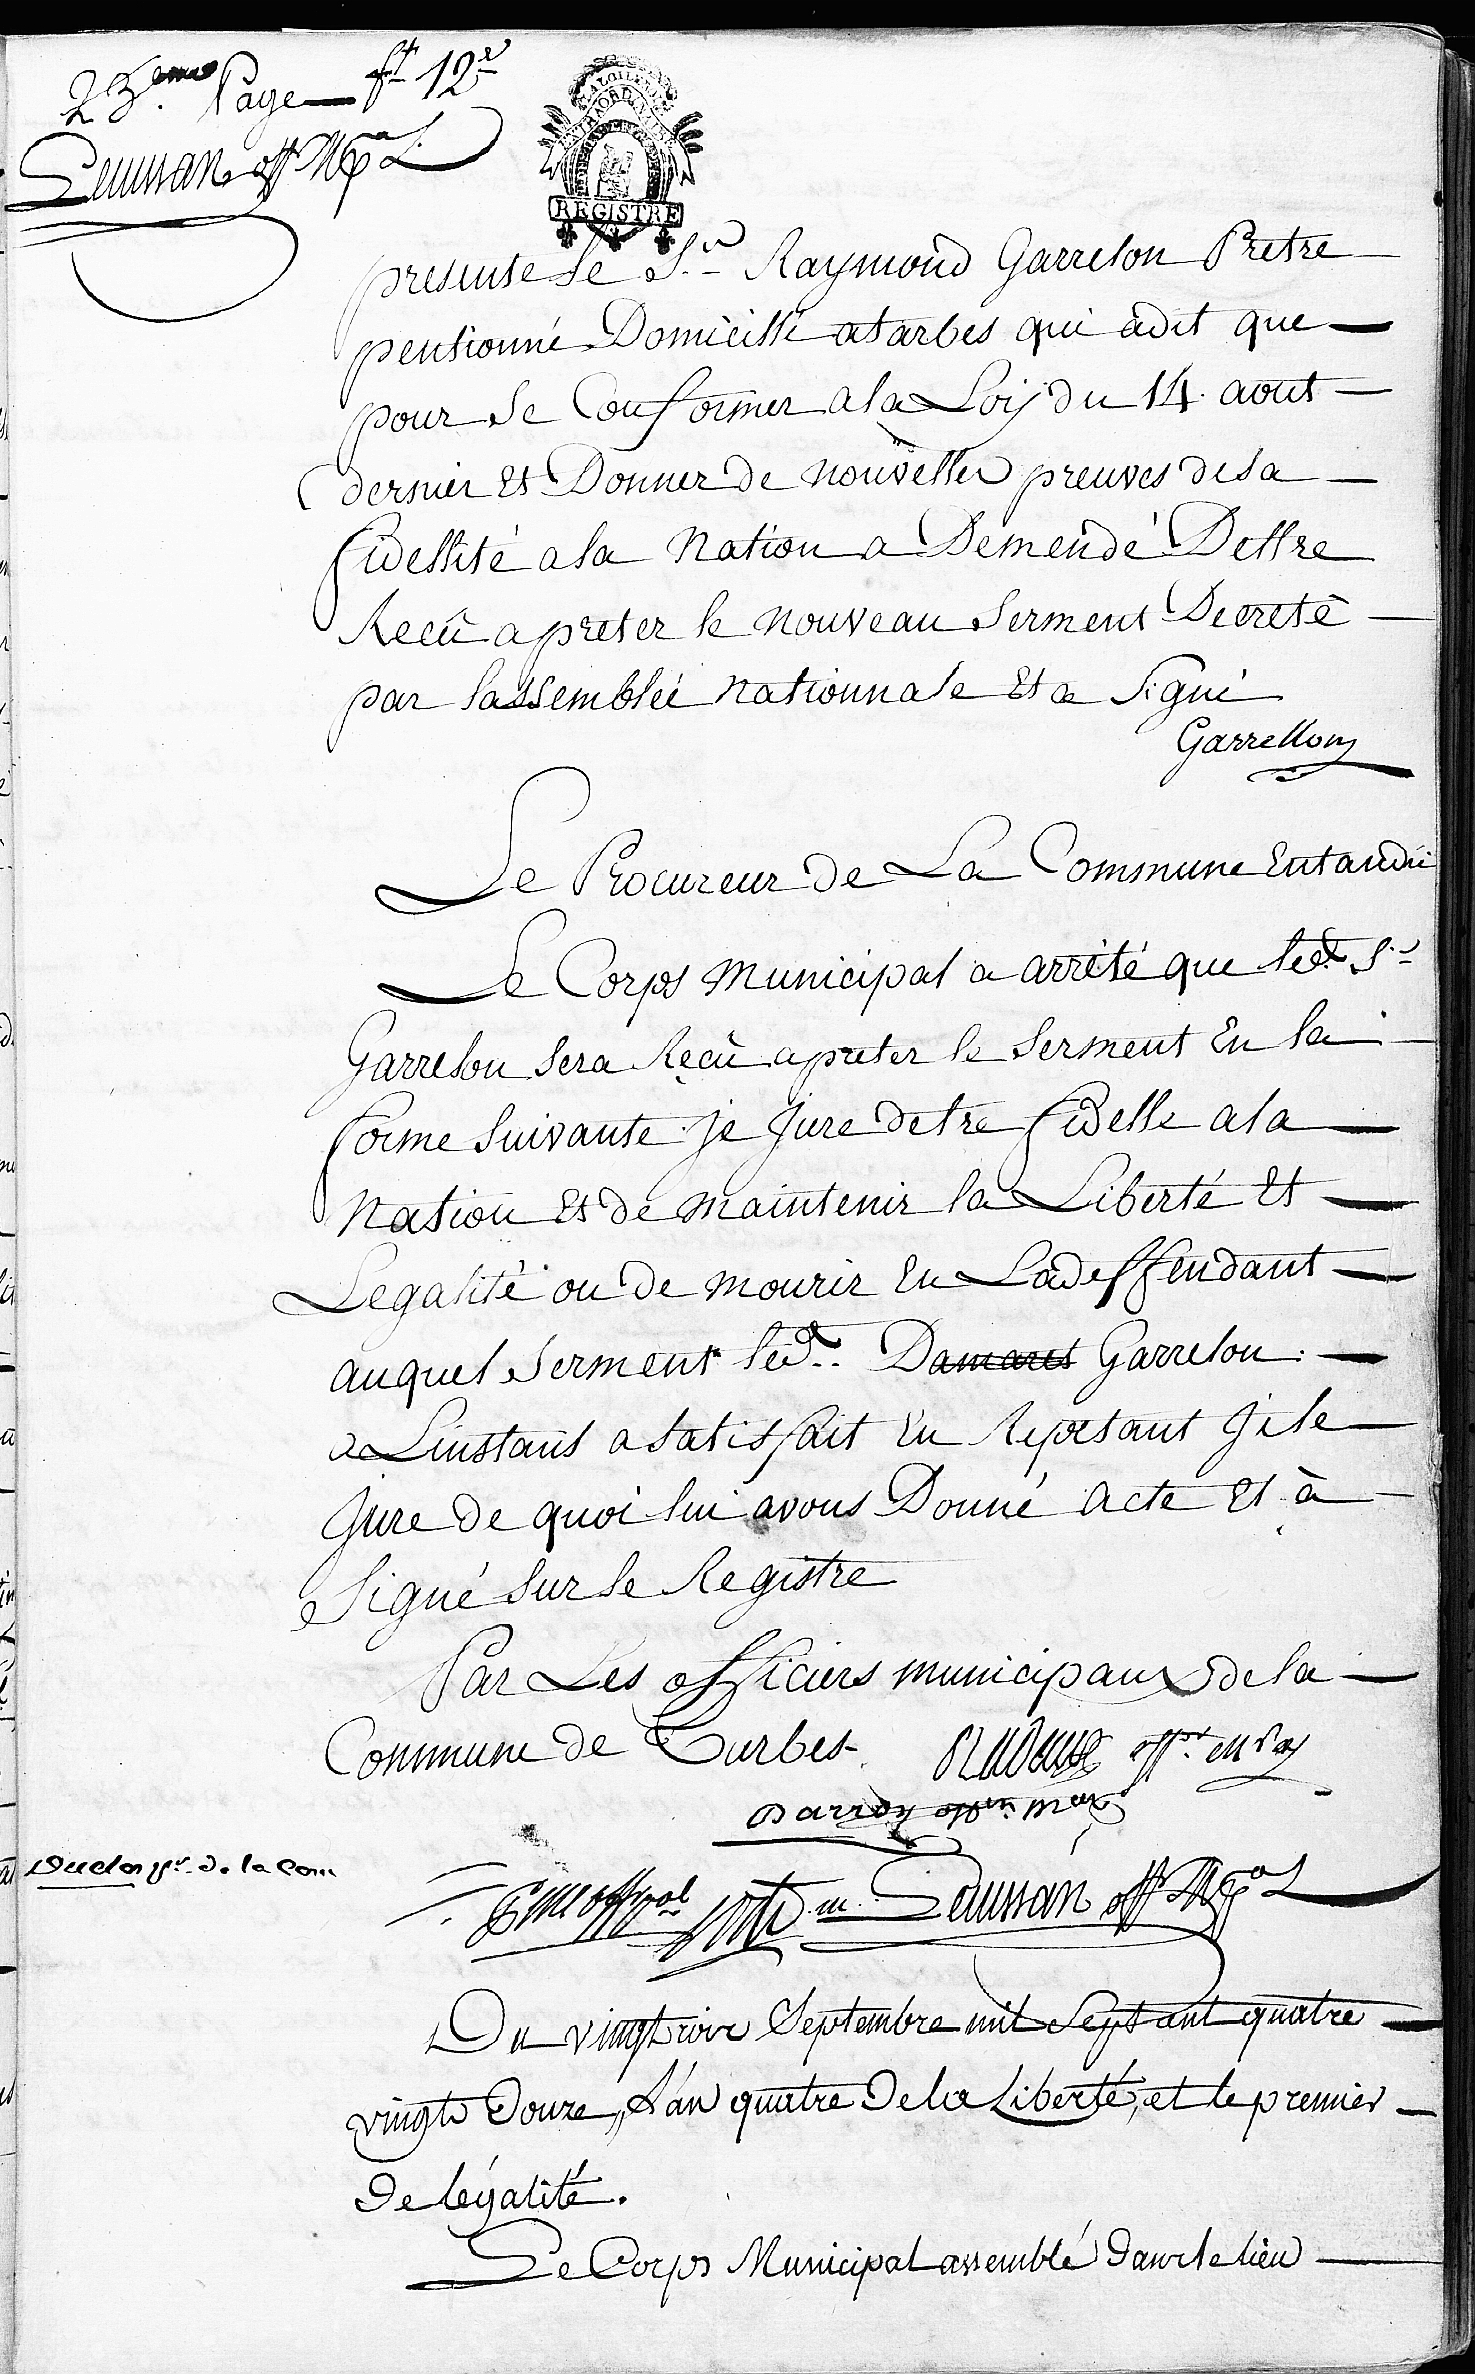 23.eme Page ft 12r
Seunsan off Mpal
REGISTRE
presente le S.r Raymond Garrelon Pretre
pentionné Domicillé atarbes qui àdit que
pour se Conformer ala Loy du 14 aout
dernier Et Donner de nouvelles preuves desa
fidellité ala Nation a Demendé Dettre
Recû apreter le nouveau Serment Decreté
par lassemblée nationnale Et a Signé
Garrellon
Le Procureur de La Commune Entandu
Le Corps Municipal a arrêté que led.t S.r
Garrelon Sera Reçû apreter le Serment En la
forme Suivante je jure detre fidelle ala
Nation Et de maintenir la Liberté Et
Legalité ou de mourir En Ladeffendant
auquel Serment led.. Damares Garrelon
a Linstant a satisfait En Repetant je le
jure de quoi lui avons Donné acte Et à
Signé Sur le Registre
Par Les officiers municipaux de la
Commune de Turbes
Barroy offer. mal
Duclos pr. de la Com
Seunsan off Mpal
Du vingt trois Septembre mil Sept cent quatre
vingts Douze, L'an quatre De la Liberté, et le premier
De légalité.
Le Corps Municipal assemblé Dans le lieu